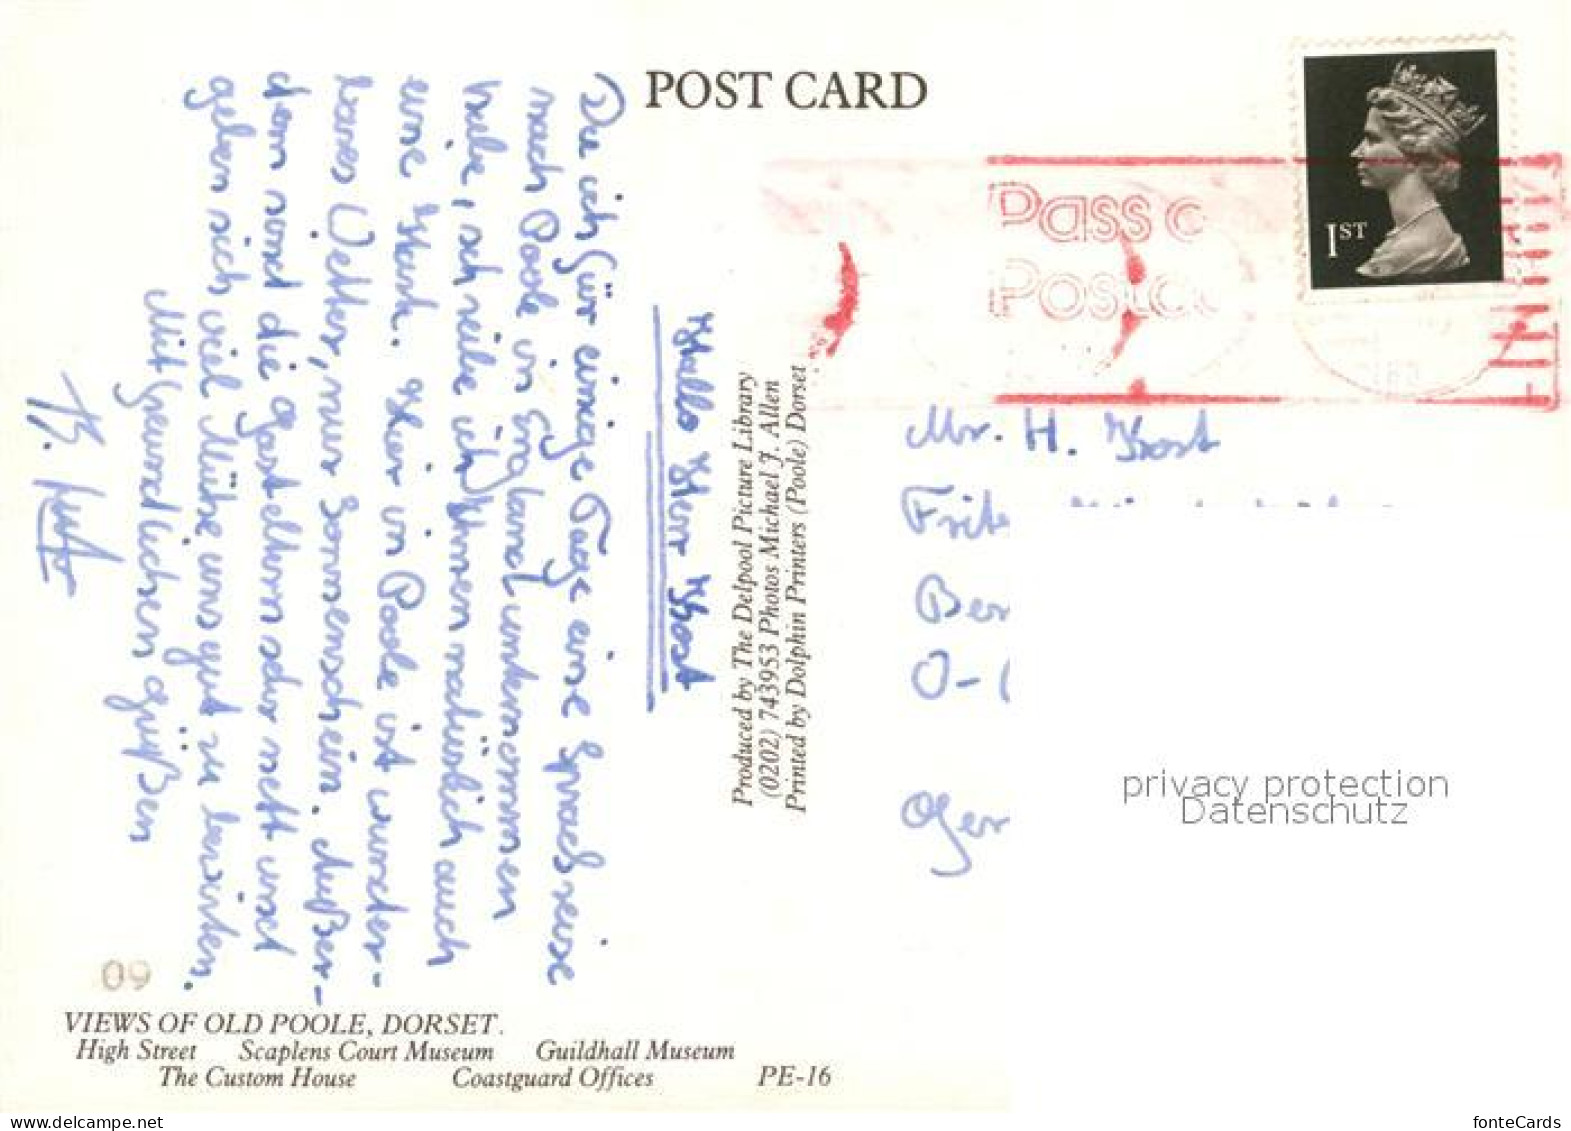 POST CARD
1ST
Pass
Postc
Hallo Herr Kost
Da ich für einige Tage eine Sprachreise
nach Poole in England unternommen
habe, schreibe ich Ihnen natürlich auch
eine Kart. Hier in Poole ist wunder-
bares Wetter, nur Sonnenschein. Außer-
dem sind die Gasteltern sehr nett und
geben sich viel Mühe uns gut zu bewirten.
Mit freundlichen Grüßen
Produced by The Delpool Picture Library
(0202) 743953 Photos Michael J. Allen
Printed by Dolphin Printers (Poole) Dorset
Mr. H. Kost
Fritz
Ber
O-
Ger
privacy protection
Datenschutz
09
VIEWS OF OLD POOLE, DORSET.
High Street Scaplens Court Museum Guildhall Museum
The Custom House Coastguard Offices PE-16
www.delcampe.net
fonteCards